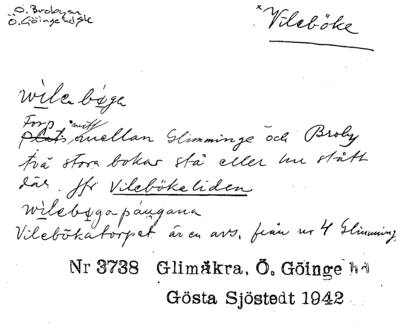 Ö. Broby sn
Ö. Göinge hd Sk
*Vileböke
wilebøga
Torp mitt
plats mellan Glimminge och Broby
två stora bokar stå eller ha stått
där. Jfr Vilebökeliden
wilebøgapáugana
Vilebökatorpet är en avs. från nr 4 Glimminge
Nr 3738 Glimåkra, Ö. Göinge hd
Gösta Sjöstedt 1942